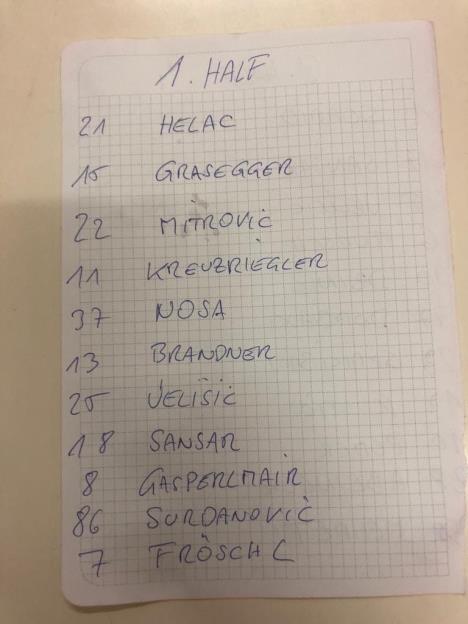 1. HALF
21 HELAC
15 GRASEGGER
22 MITROVIĆ
11 KREUZRIEGLER
37 NOSA
13 BRANDNER
25 VELIŠIĆ
18 SANSAR
8 GASPERLMAIR
86 SURDANOVIĆ
7 FRÖSCHL